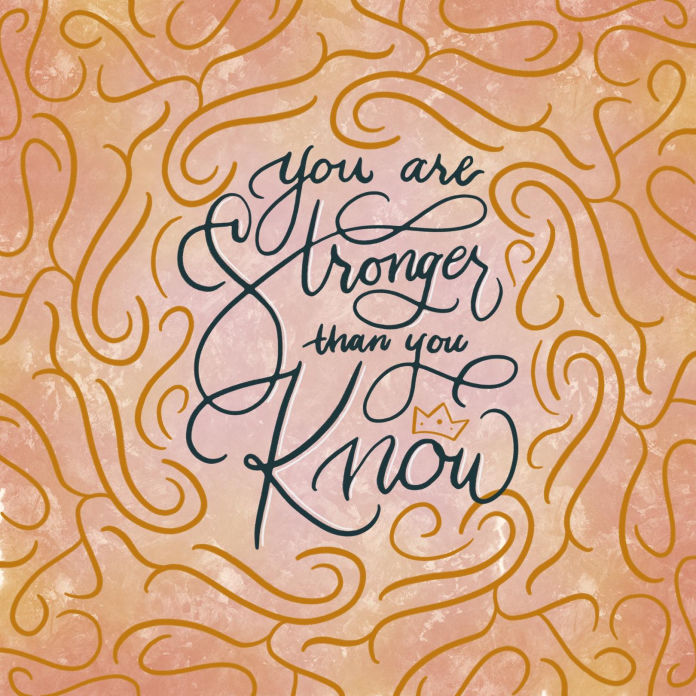 you are
Stronger
than you
Know